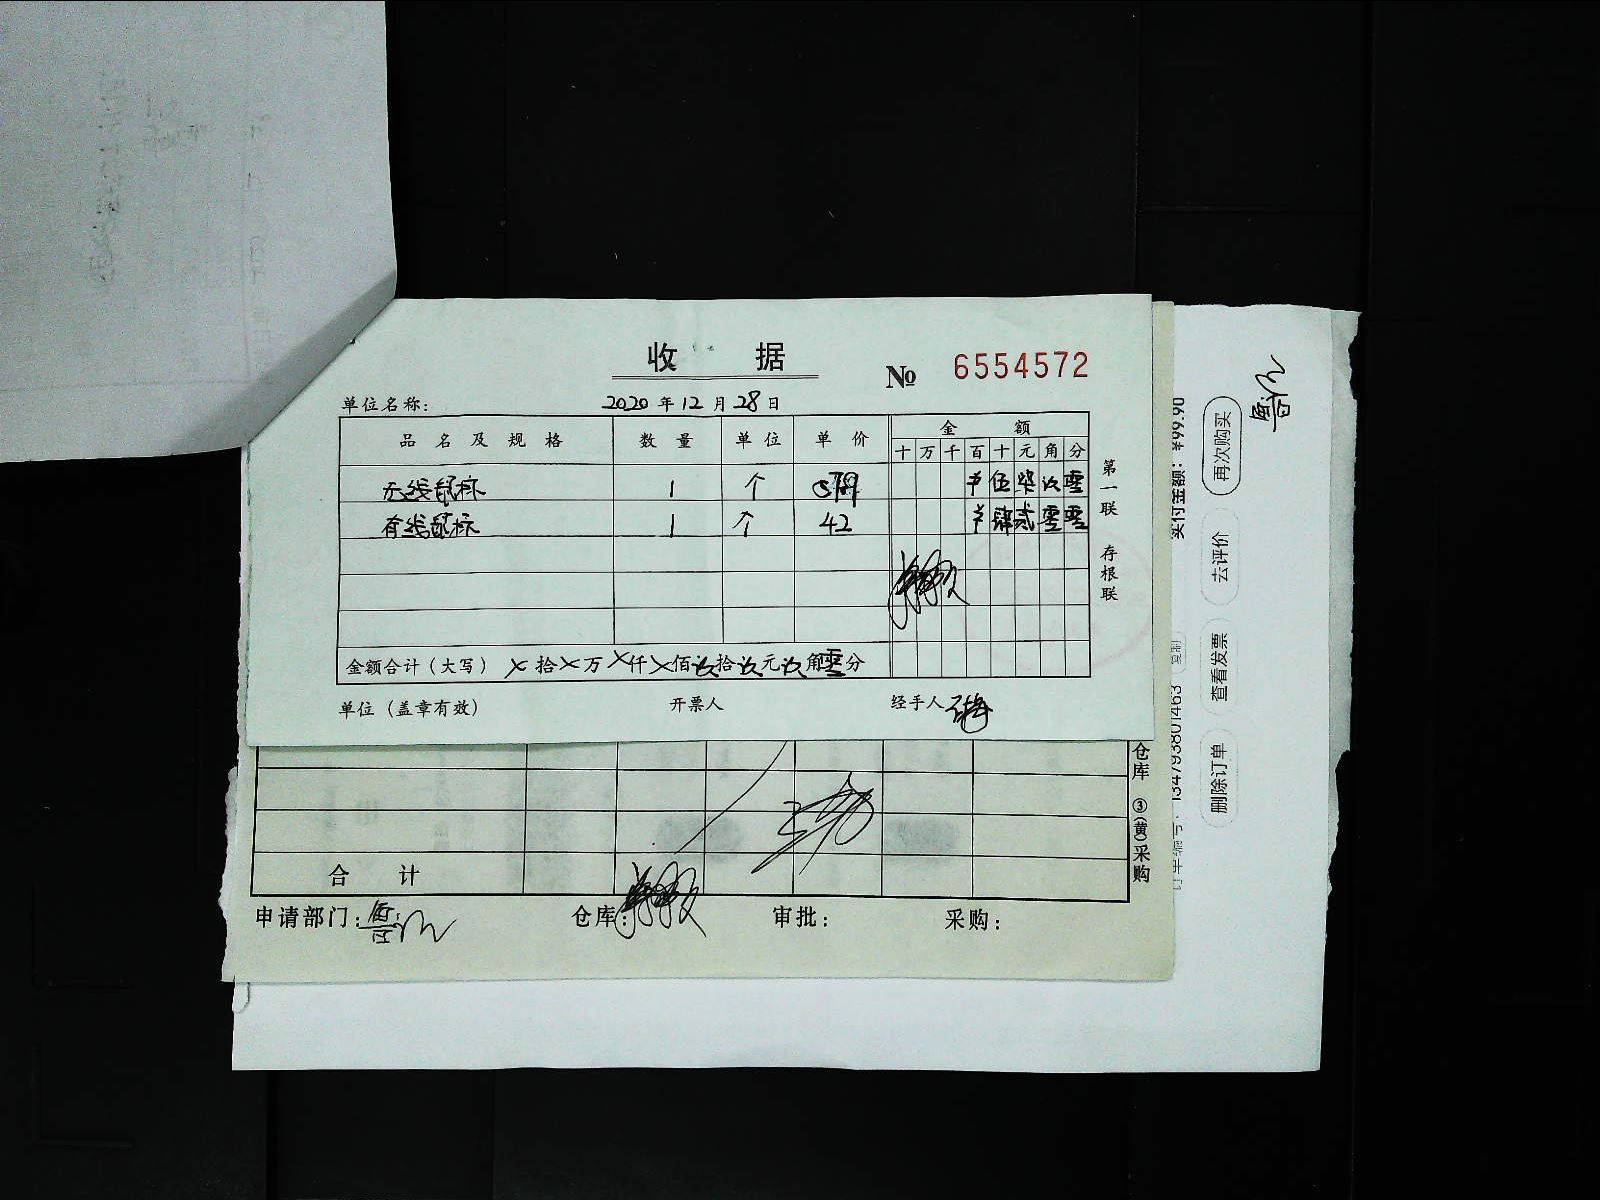 收 据
№ 6554572
单位名称: 2020 年 12 月 28 日
品 名 及 规 格 数 量 单 位 单 价 金 额
十 万 千 百 十 元 角 分
无线鼠标 1 个 伍 柒 零
有线鼠标 1 个 42 肆 贰 零 零
金额合计（大写） 拾 万 仟 佰 拾 元 角 零 分
单位（盖章有效） 开票人 经手人
第一联 存根联
仓库 ③(黄)采购
合 计
申请部门: 仓库: 审批: 采购:
实付金额: ¥99.90
134793801463
再次购买
去评价
查看发票
删除订单